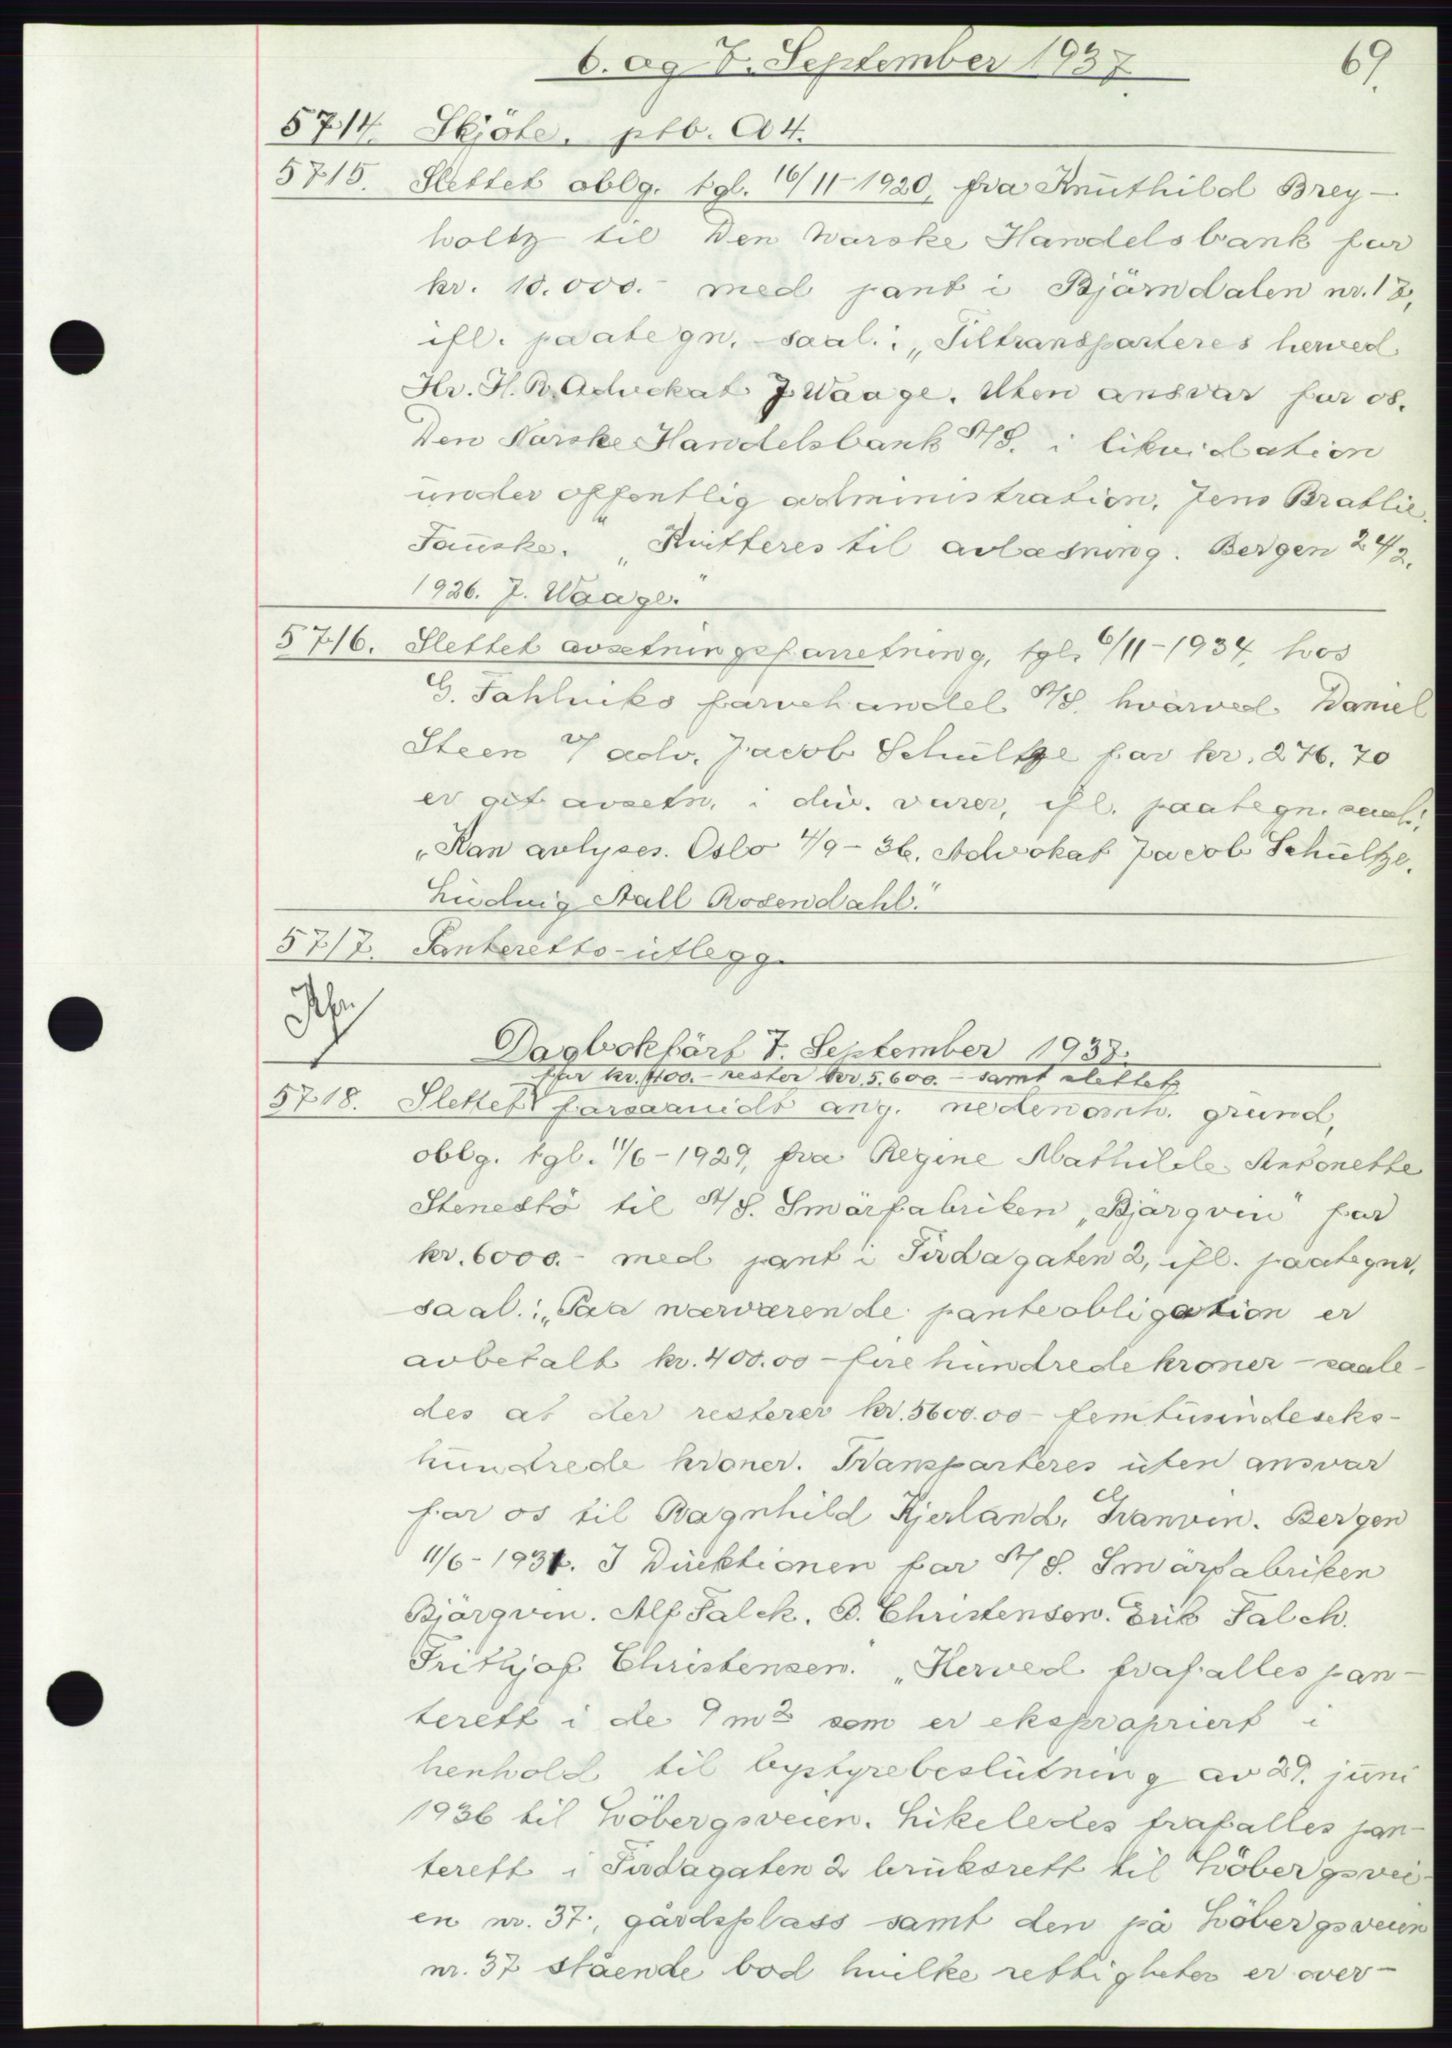 6. og 7. September 1937.
69.
5714. Skjöte. ptb. A 4.
5715. Slettet oblg. tgl. 16/11-1920, fra Knuthild Brey-
holtz til Den Norske Handelsbank for
kr. 10.000.- med pant i Björndalen nr. 17,
ifl. paategn. saal.: „Tiltransporteres herved
Hr. H.R. Advokat J. Waage. Uten ansvar for os.
Den Norske Handelsbank A/S. i likvidation
under offentlig administration. Jens Bratlie.
Fauske." „Kvitteres til avlæsning. Bergen 24/2.
1926. J. Waage."
5716. Slettet avsetningsforretning, tgl. 6/11-1934, hos
G. Fahlviks farvehandel A/S. hvorved Daniel
Steen v/ adv. Jacob Schultze for kr. 276.70
er git avsetn. i div. varer, ifl. paategn. saal.:
„Kan avlyses. Oslo 4/9-36. Advokat Jacob Schultze.
Ludvig Stall Rosendahl."
5717. Panteretts-utlegg.
Dagbokfört 7. September 1937.
for kr. 400.- rester kr. 5.600.- samt slettet
5718. Slettet forsaavidt ang. nedenomh. grund,
oblg. tgl. 11/6-1929, fra Regine Mathilde Antonette
Stenestö til A/S. Smörfabriken „Björgvin" for
kr. 6000.- med pant i Firdagaten 2, ifl. paategnr.
saal.: „Paa nærværende panteobligation er
avbetalt kr. 400.00 - fire hundrede kroner - saale-
des at der resterer kr. 5600.00 - femtusindeseks-
hundrede kroner. Transporteres uten ansvar
for os til Ragnhild Kjerland, Granvin. Bergen
11/6-1931. I Direktionen for A/S. Smörfabriken
Björgvin. Alf Falck. B. Christensen. Erik Falch.
Frithjof Christensen." „Herved frafalles pan-
terett i de 9 m2 som er ekspropriert i
henhold til bystyrebeslutning av 29. juni
1936 til Löbergsveien. Likeledes frafalles pan-
terett i Firdagaten 2 bruksrett til Löbergsvei-
en nr. 37, gårdsplass samt den på Löbergsveien
nr. 37 stående bod hvilke rettigheter er over-